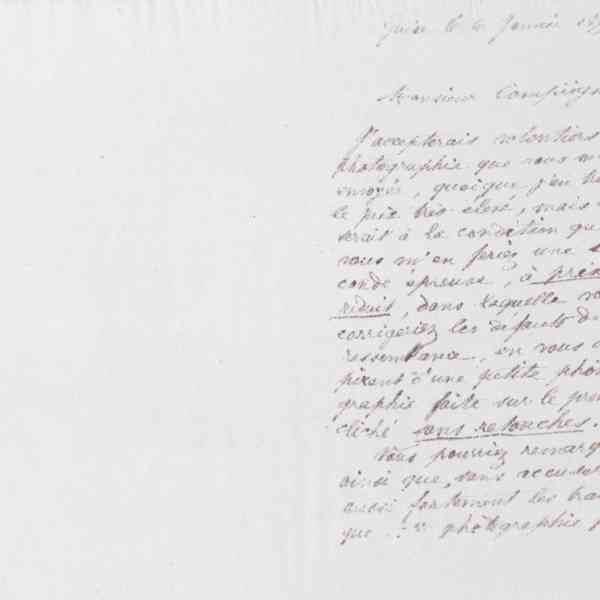 le 6 Janvier
Monsieur
J'accepterais volontiers
photographie que vous
envoyée, quoique j'en
le prix très élevé, mais
serait à la condition
vous m'en feriez une
conde épreuve, à
réduit, dans laquelle
corrigeriez les défauts
ressemblance, en vous
d'une petite
graphie faite sur le
cliché sans retouches.
Vous pourriez
ainsi que, sans
aussi fortement les
que photographie